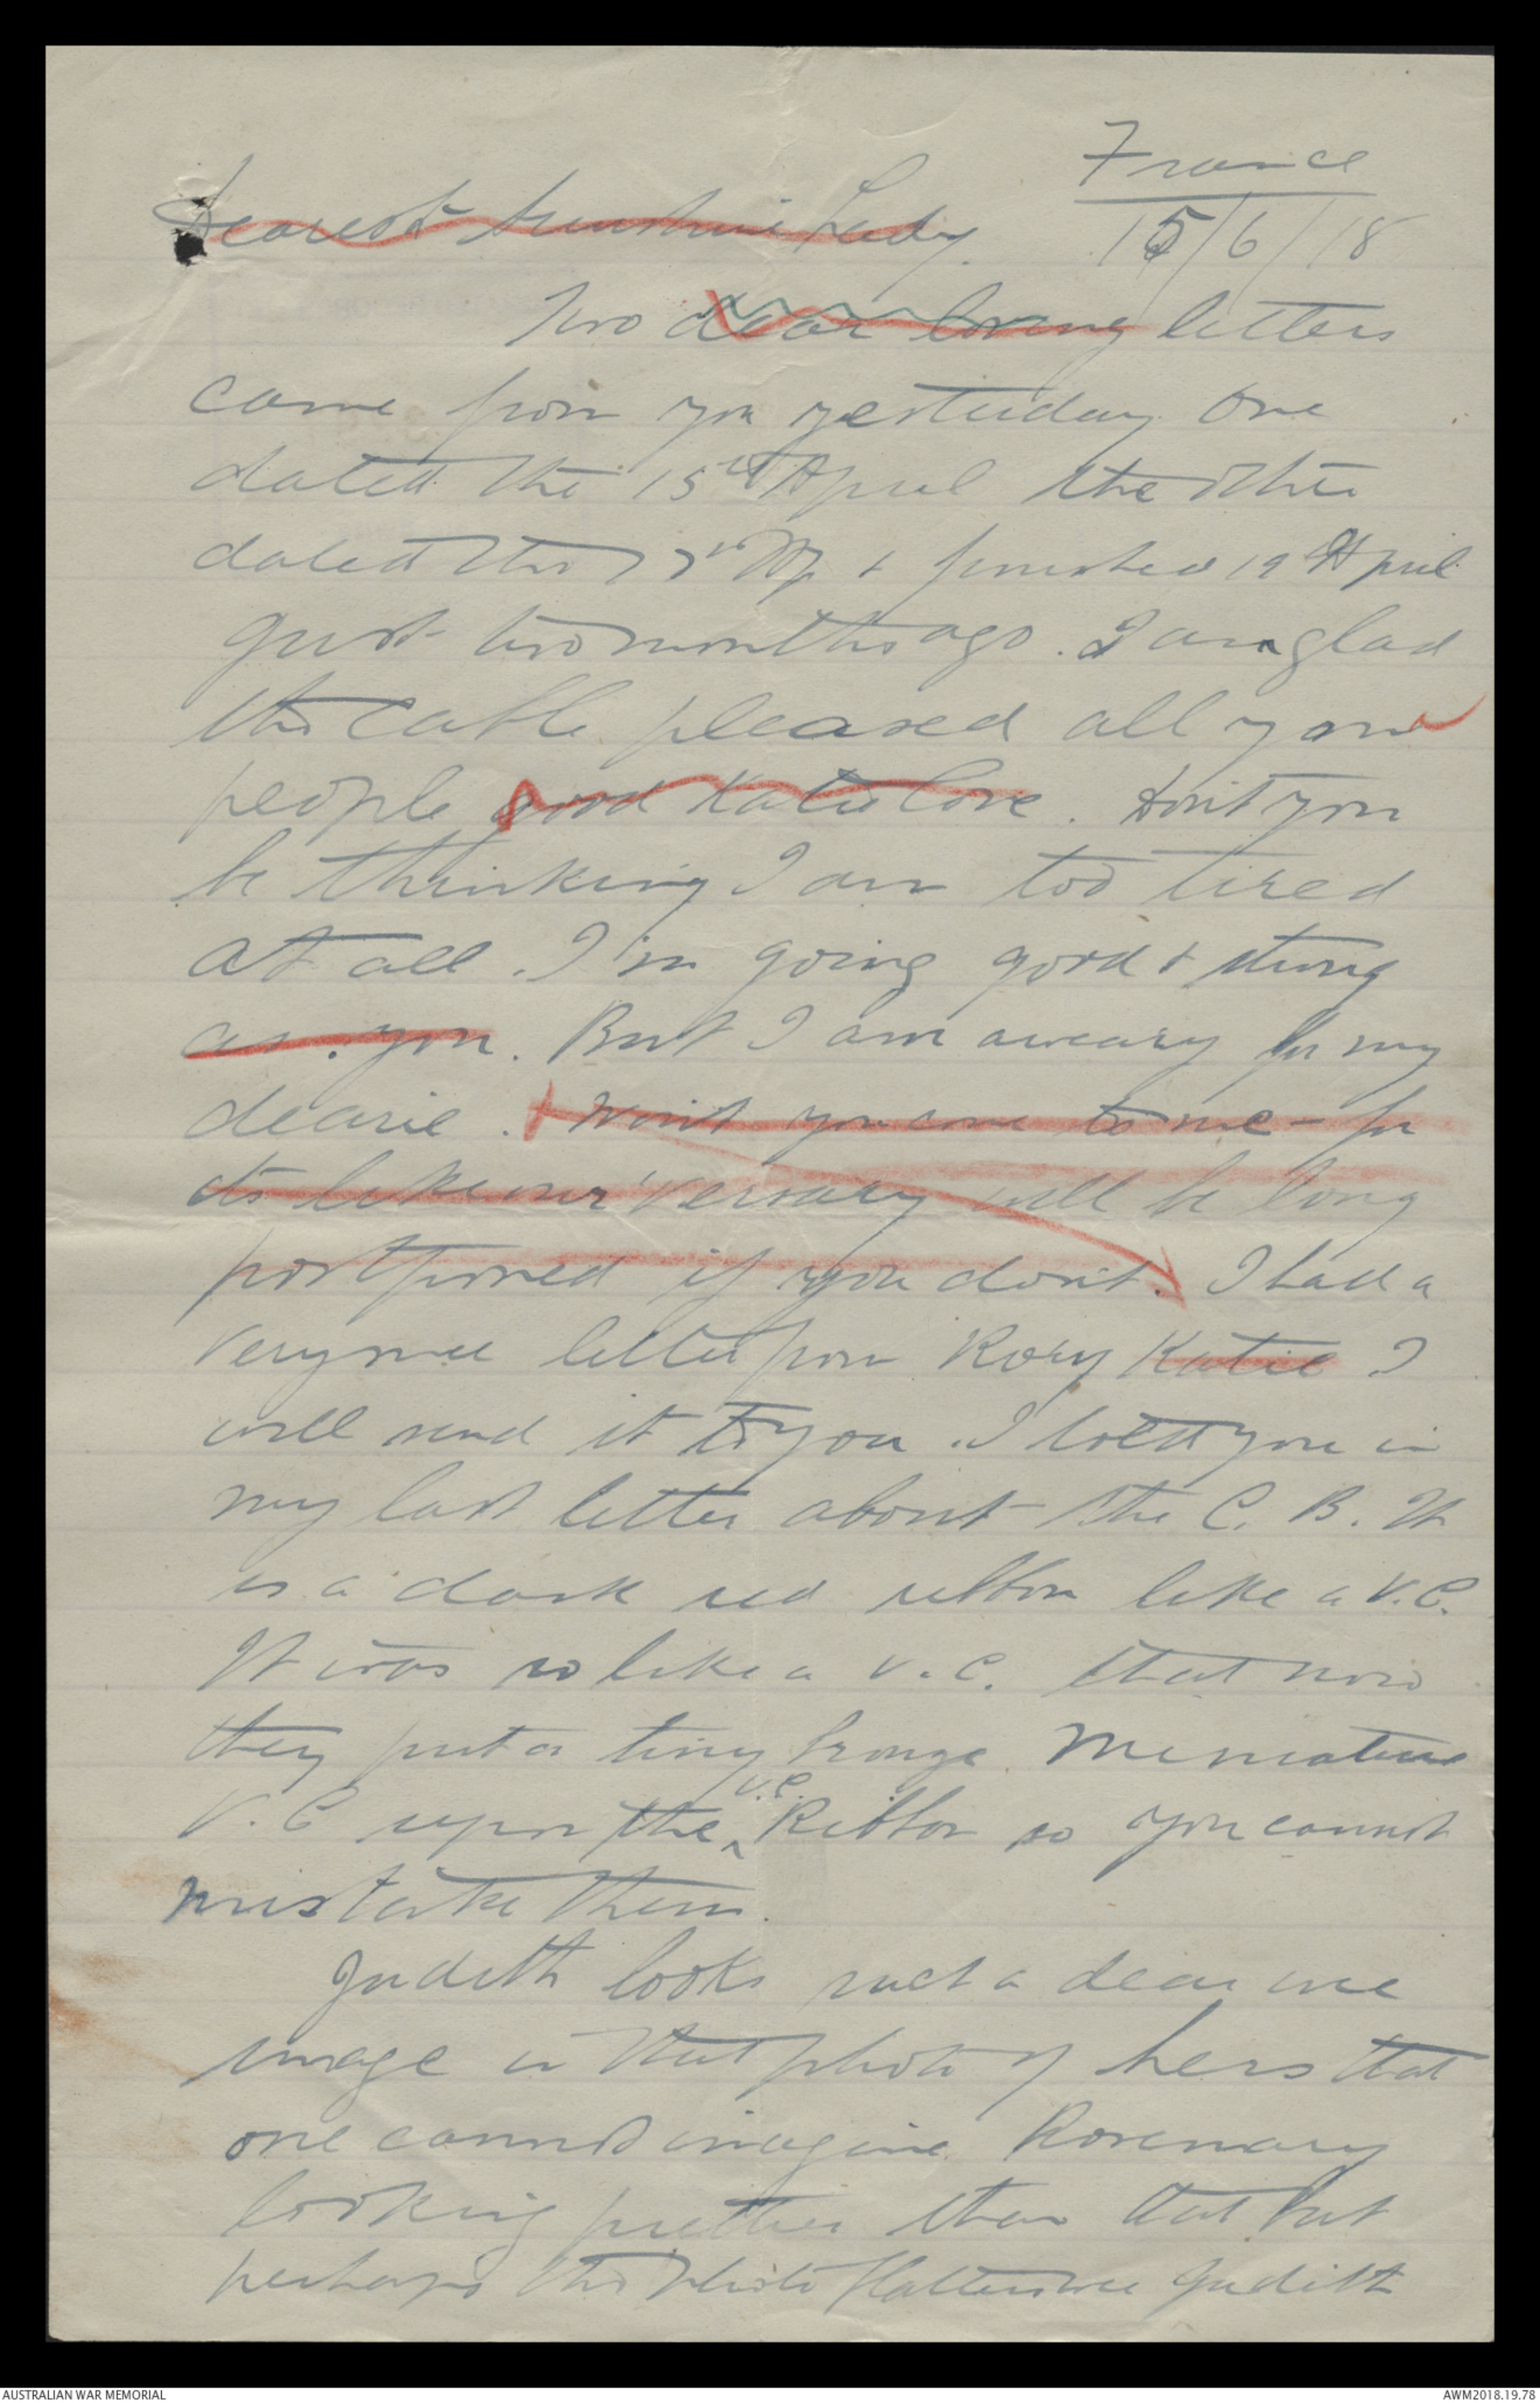 France
15/6/18
Dearest Sunshine Lady.
Two dear loving letters
came from you yesterday One
dated the 15th April the other
dated the & finished 19th April
just two months ago. I am glad
the cable pleased all your
people good Katie love. Don't you
be thinking I am too tired
at all. I'm going good & strong
as you. But I am aweary for my
dearie. Won't you come to me - for
its like our 'versary will be long
postponed if you don't. I had a
very nice letter from Rory Katie I
will send it to you. I told you in
my last letter about the C. B. It
is a dark red ribbon like a V.C.
It was so like a V.C. that now
they put a tiny bronze Meniature
V.C upon the V.C. Ribbon so you cannot
mistake them.
Judith looks such a dear wee
image in that photo of hers that
one cannot imagine Rosemary
looking prettier than that but
perhaps the photo flatters wee Judith
AUSTRALIAN WAR MEMORIAL
AWM2018.19.78